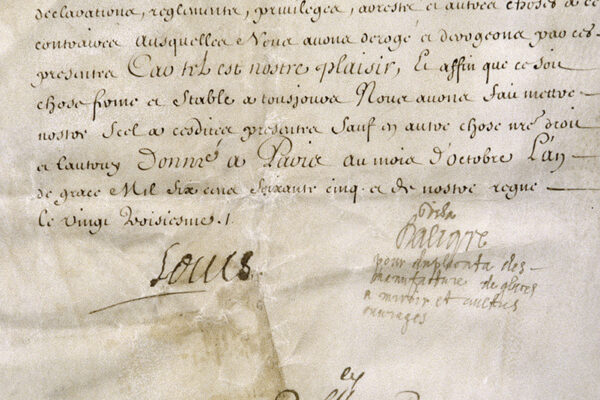 declarations, reglements, privileges, arrests et autres choses a ce
contraires ausquelles Nous avons derogé et derogeons par ces
presentes Car tel est nostre plaisir, Et affin que ce soit
chose ferme et stable a tousjours Nous avons fait mettre
nostre Scel a cesdites presentes Sauf en autre chose nre droit
et lautruy Donné a Paris au mois d'octobre L'an
de grace Mil Six cens Soixante cinq et de nostre regne
le vingt troisiesme .
Louis
Visa
Daligre
pour des
manufacture de glaces
a miroir et aultres
ouvrages